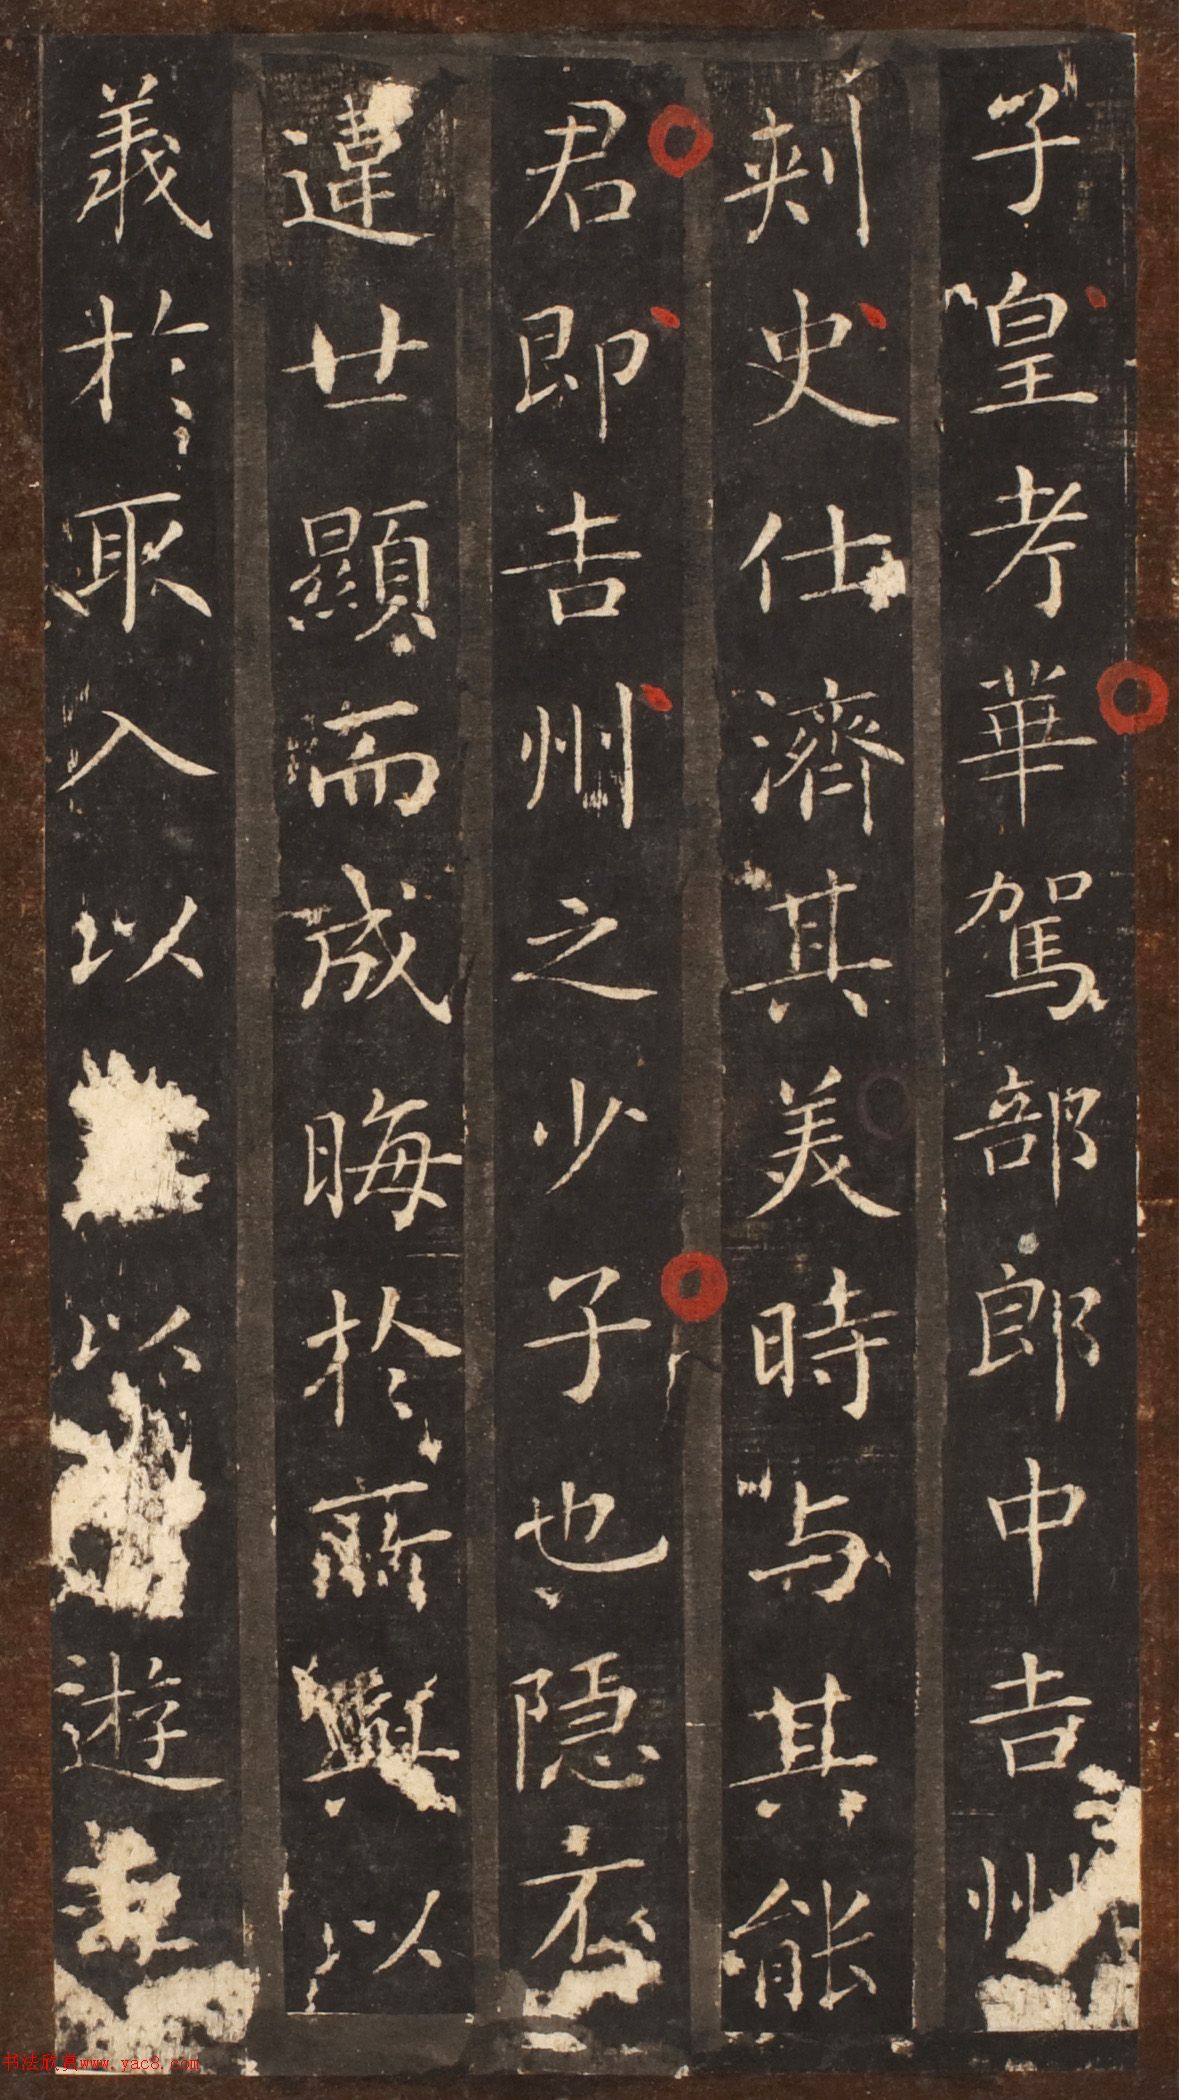 子皇考華駕部郎中吉州
刾史仕濟其美時与其能
君即吉州之少子也隱
違廿顯而成晦於所與以
義於取入以以遊
书法欣赏www.yac8.com